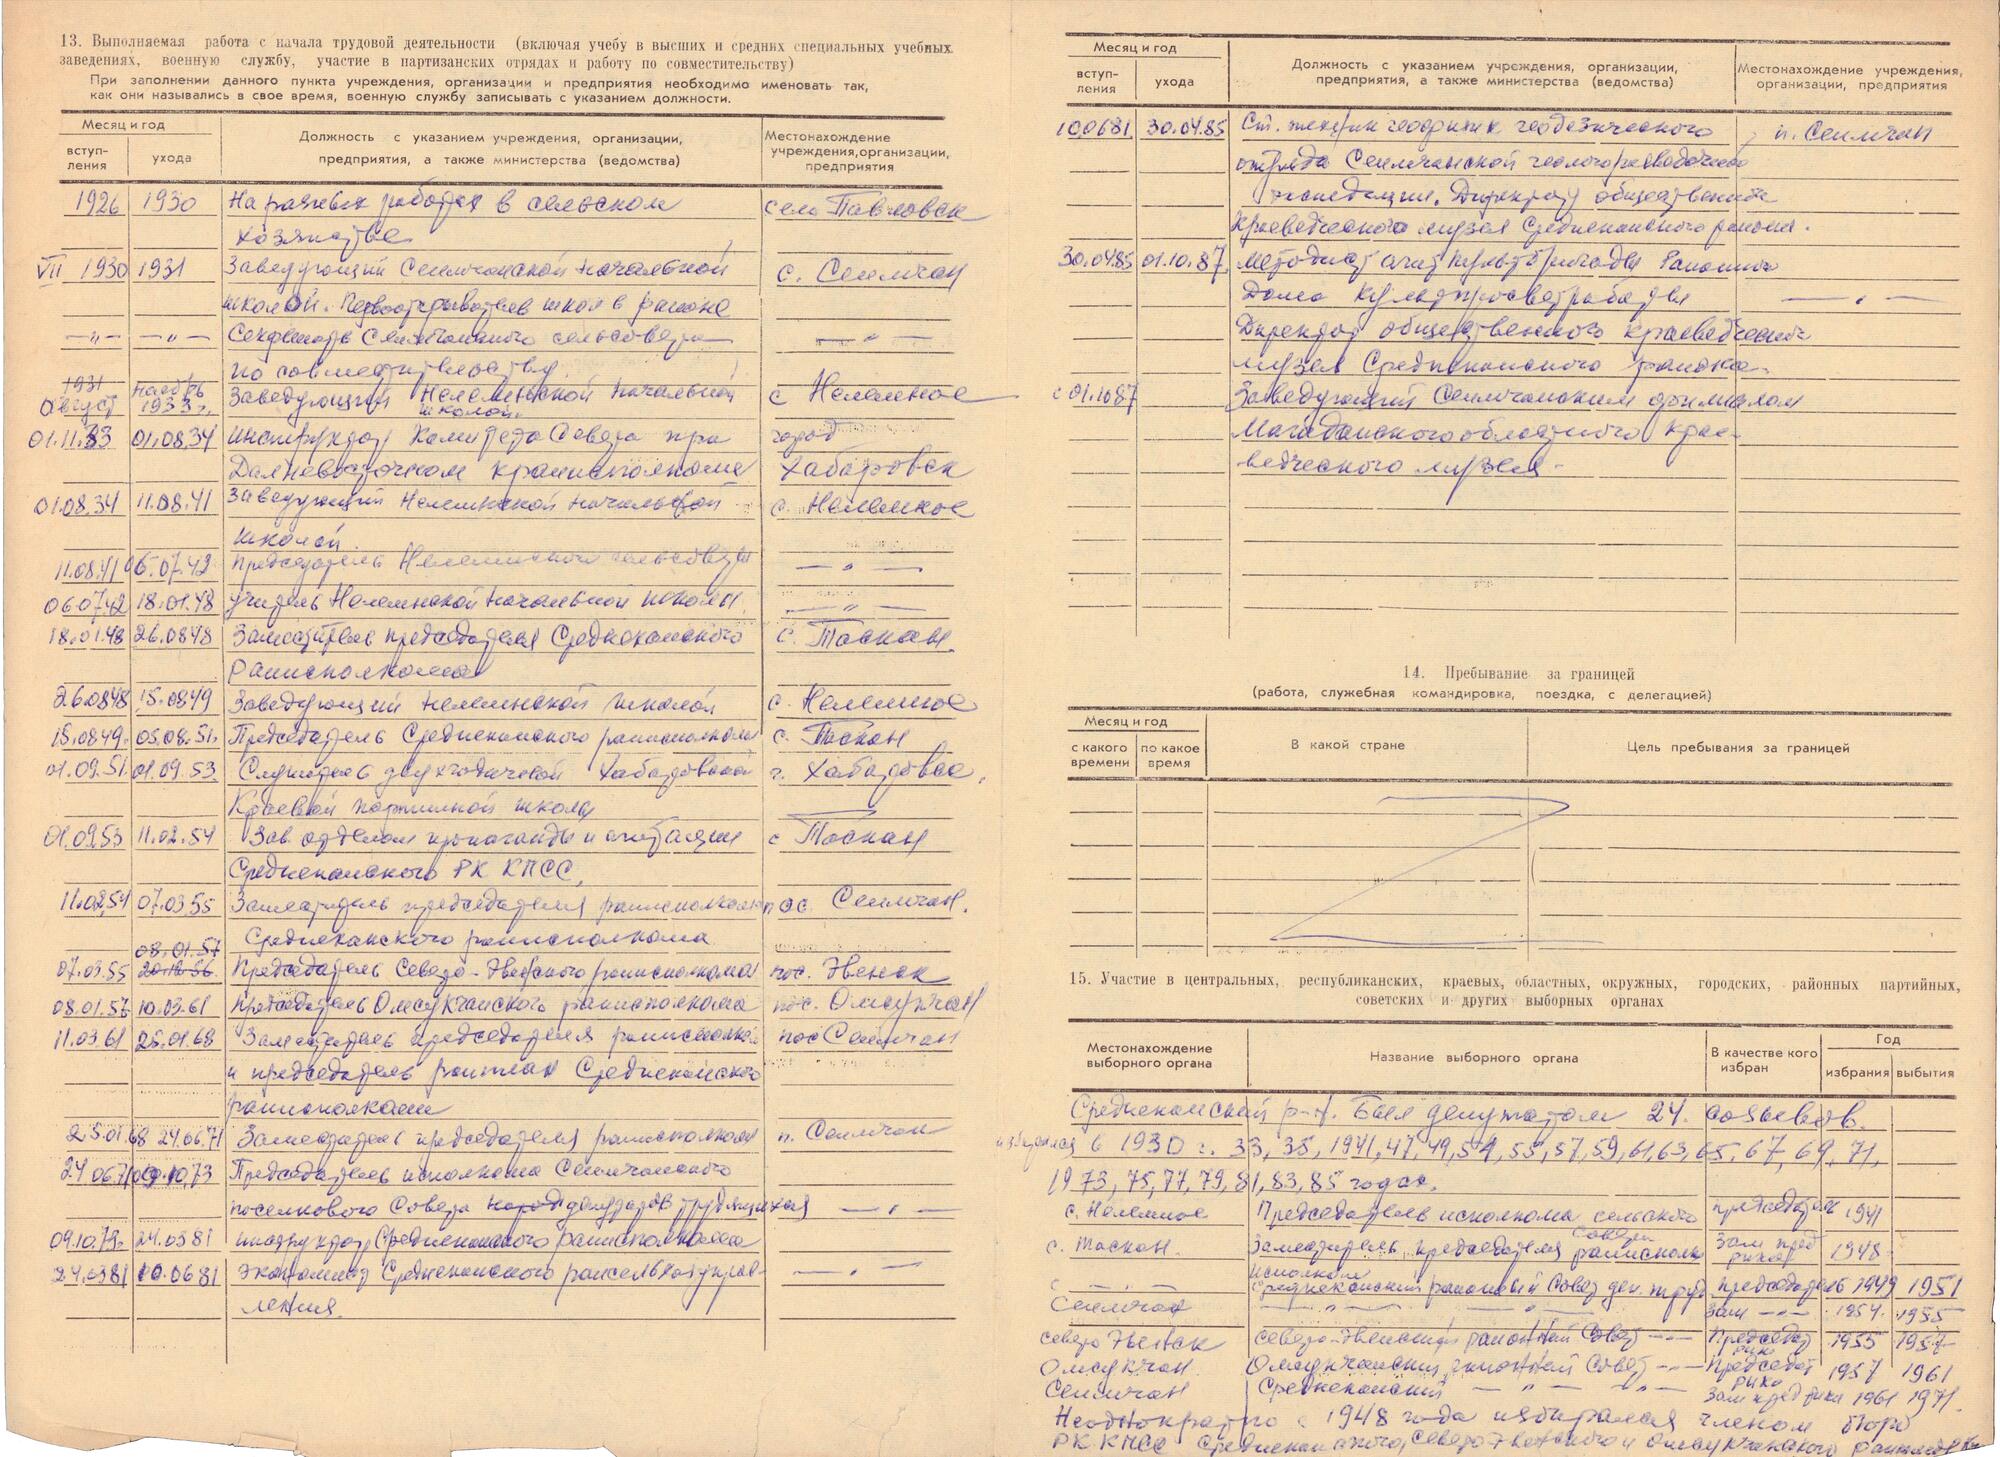 13. Выполняемая работа с начала трудовой деятельности (включая учебу в высших и средних специальных учебных
заведениях, военную службу, участие в партизанских отрядах и работу по совместительству)
При заполнении данного пункта учреждения, организации и предприятия необходимо именовать так,
как они назывались в свое время, военную службу записывать с указанием должности.
Месяц и год
вступ-
ления
ухода
Должность с указанием учреждения, организации,
предприятия, а также министерства (ведомства)
Местонахождение
учреждения, организации,
предприятия
1926 1930 На разных работах в сельском село Павловск
хозяйстве
VII 1930 1931 Заведующий Сеймчанской начальной с. Сеймчан
школой. Первооткрыватель школ в районе
—"— —"— Секретарь Сеймчанского сельсовета —"—
по совместительству.
1931 ноябрь
август 1933 г. Заведующий Нелемнской начальной школой. с Нелемное
01.11.33 01.08.34 инструктор Комитета Севера при город
Далневосточном крайисполкоме Хабаровск
01.08.34 11.08.41 Заведующий Нелемнской начальной с. Нелемное
школой.
11.08.41 06.07.42 Председатель Нелемнского сельсовета —"—
06.07.42 18.01.48 учитель Нелемнской начальной школы. —"—
18.01.48 26.08.48 Заместитель председателя Среднеканского с. Таскан.
райисполкома
26.08.48 15.08.49 Заведующий Нелемнской школой с. Нелемное
15.08.49. 05.08.51. Председатель Среднеканского райисполкома с. Таскан
01.09.51. 01.09.53. Слушатель двухгодичной Хабаровской г. Хабаровск.
Краевой партийной школы
01.09.53 11.02.54 Зав. отделом пропаганды и агитации с Таскан
Среднеканского РК КПСС.
11.02.54 07.03.55 Заместитель председателя райисполкома пос. Сеймчан.
Среднеканского райисполкома
08.01.57
07.03.55 20.12.56. Председатель Северо-Эвенского райисполкома пос. Эвенск
08.01.57 10.03.61 Председатель Омсукчанского райисполкома пос. Омсукчан
11.03.61 25.01.68 Заместитель председателя райисполкома пос Сеймчан
и председатель райплан Среднеканского
райисполкома
25.01.68 24.06.71 Заместитель председателя райисполкома п. Сеймчан
24.06.71 09.10.73 Председатель исполкома Сеймчанского
поселкового Совета депутатов трудящихся —"—
09.10.73. 24.03.81 инструктор Среднеканского райисполкома
24.03.81 10.06.81 экономист Среднеканского райсельхозуправ- —"—
ления.
Месяц и год
вступ-
ления
ухода
Должность с указанием учреждения, организации,
предприятия, а также министерства (ведомства)
Местонахождение учреждения,
организации, предприятия
10.06.81 30.04.85 Ст. техник геофизик геодезического п. Сеймчан
отряда Сеймчанской геологоразведочной
экспедиции. Директор общественного
Краеведческого музея Среднеканского района.
30.04.85 01.10.87. методист агиткультбригады Районного
Дома культпросветработы —"—
Директор общественного краеведческого
музея Среднеканского района.
с 01.10.87 Заведующий Сеймчанским филиалом
Магаданского областного крае-
ведческого музея.
14. Пребывание за границей
(работа, служебная командировка, поездка, с делегацией)
Месяц и год
с какого
времени
по какое
время
В какой стране
Цель пребывания за границей
15. Участие в центральных, республиканских, краевых, областных, окружных, городских, районных партийных,
советских и других выборных органах
Местонахождение
выборного органа
Название выборного органа
В качестве кого
избран
Год
избрания
выбытия
Среднеканский р-н. Был депутатом 24. созывов.
избирался в 1930 г. 33, 35, 1941, 47, 49, 54, 55, 57, 59, 61, 63, 65, 67, 69, 71,
1973, 75, 77, 79, 81, 83, 85 годах.
с. Нелемное Председатель исполкома сельского Совета председатель 1941
с. Таскан. Заместитель председателя райисполк Зам пред рика 1948
с —"— исполком Среднеканский районный Совет деп. труд председатель 1949 1951
Сеймчан —"— —"— Зам —"— 1954. 1955
Северо Эвенск Северо-Эвенский районный Совет —"— Председат рика 1955 1957
Омсукчан. Омсукчанский районный Совет —"— Председат рика 1957 1961
Сеймчан Среднеканский —"— —"— Зам пред рика 1961 1971.
Неоднократно с 1948 года избирался членом бюро
РК КПСС Среднеканского, Северо Эвенского и Омсукчанского